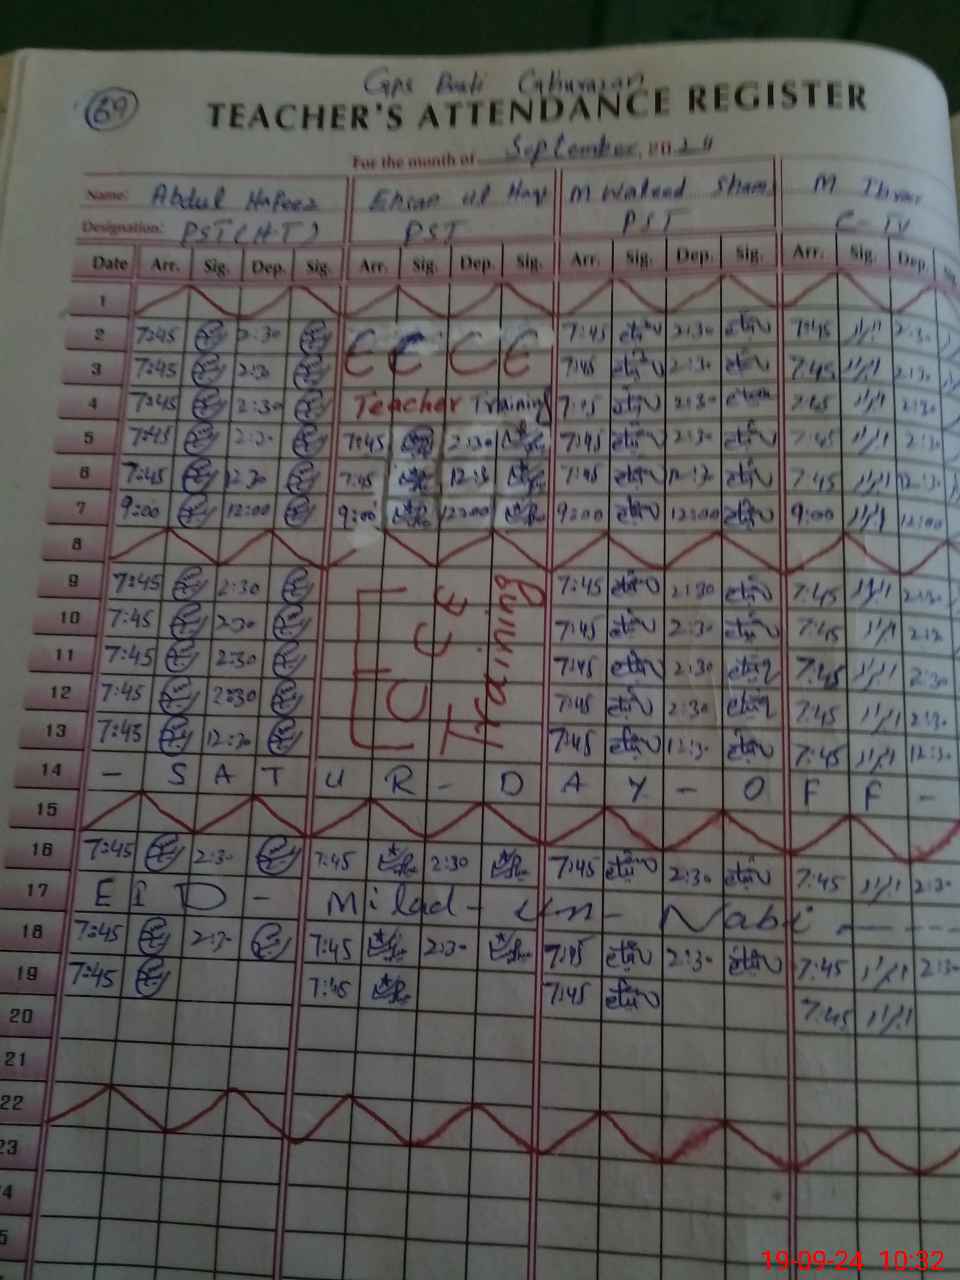 69
Gps
TEACHER'S ATTENDANCE REGISTER
For the month of September, 2024
Name: Abdul Hafeez Ehsan ul Haq M Waheed Shams M
Designation: PST (H.T) PST PST
Date Arr. Sig. Dep. Sig. Arr. Sig. Dep. Sig. Arr. Sig. Dep. Sig. Arr. Sig. Dep.
1
2 7:45 2:30 E C C E 7:45 2:30 7:45 2:30
3 7:45 2:30 7:45 2:30 7:45 2:30
4 7:45 2:30 Teacher Training 7:45 2:30 7:45 2:30
5 7:45 2:30 7:45 2:30 7:45 2:30 7:45 2:30
6 7:45 12:30 7:45 12:30 7:45 12:30 7:45 12:30
7 9:00 12:00 9:00 12:00 9:00 12:00 9:00 12:00
8
9 7:45 2:30 E C C E Training 7:45 2:30 7:45 2:30
10 7:45 2:30 7:45 2:30 7:45 2:30
11 7:45 2:30 7:45 2:30 7:45 2:30
12 7:45 2:30 7:45 2:30 7:45 2:30
13 7:45 12:30 7:45 12:30 7:45 12:30
14 - S A T U R - D A Y - O F F -
15
16 7:45 2:30 7:45 2:30 7:45 2:30 7:45 2:30
17 E I D - Milad - un - Nabi
18 7:45 2:30 7:45 2:30 7:45 2:30 7:45 2:30
19 7:45 7:45 7:45 7:45
20
21
22
23
4
5
19-09-24 10:32